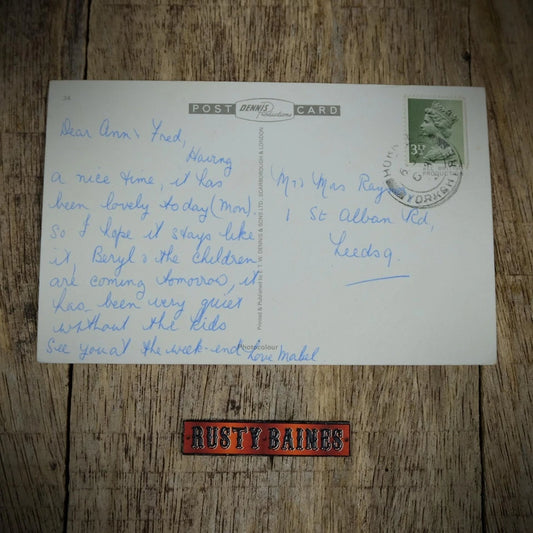 34
POST DENNIS Productions CARD
Dear Ann & Fred,
Having
a nice time, it has
been lovely today (Mon)
So I hope it stays like
it, Beryl & the children
are coming tomorrow, it
has been very quiet
without the kids
See you at the week-end Love Mabel
Printed & Published by E. T. W. DENNIS & SONS LTD. SCARBOROUGH & LONDON
Photocolour
Mr & Mrs Ray
1 St Alban Rd,
Leeds 9.
3½P
YORKSHIRE
RUSTY BAINES